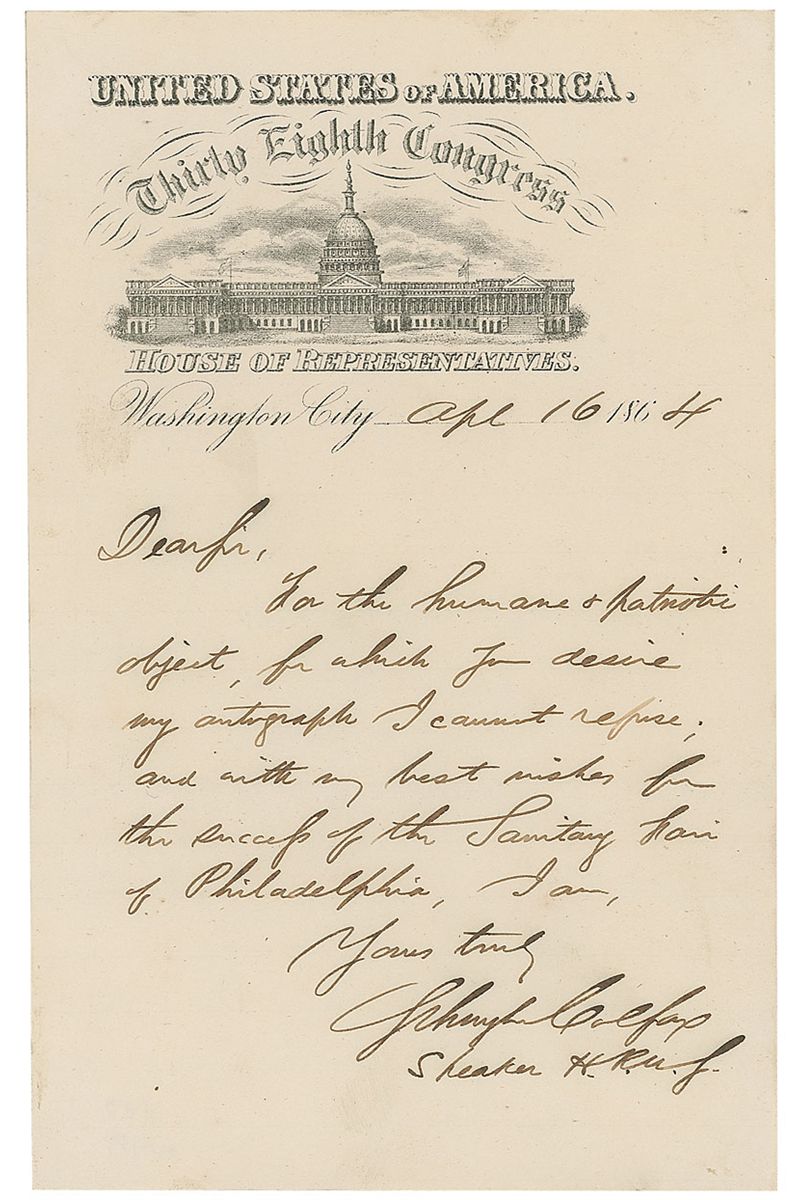 UNITED STATES OF AMERICA.
Thirty Eighth Congress
HOUSE OF REPRESENTATIVES.
Washington City Apl 16 1864
Dear Sir,
For the humane & patriotic
object, for which you desire
my autograph I cannot refuse;
and with my best wishes for
the success of the Sanitary Fair
of Philadelphia, I am,
Yours truly
Schuyler Colfax
Speaker H.R.U.S.